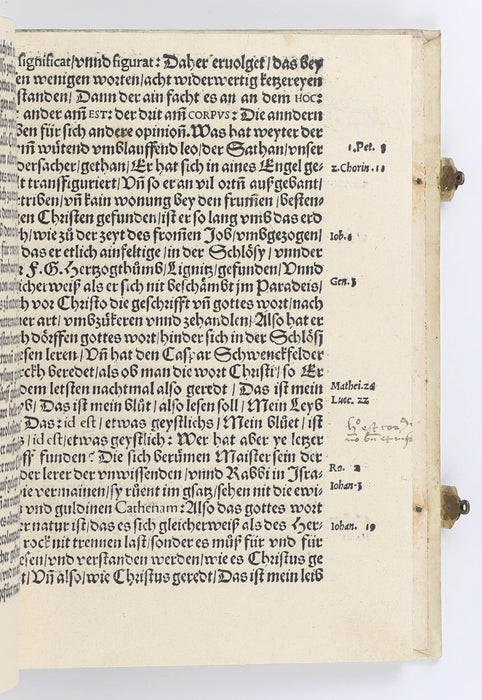 significat/vnnd figurat: Daher eruolget/das bey
en wenigen worten/acht widerwertig ketzereyen
standen/ Dann der ain facht es an an dem HOC:
ander am̃ EST: der drit am̃ CORPVS: Die anndern
ßen für sich andere opinion. Was hat weyter der
nñ wütend vmblauffend leo/der Sathan/vnser
dersacher/gethan/ Er hat sich in aines Engel ge-
t transsfiguriert/ Vñ so er an vil ortñ aufgebant/
triben/vñ kain wonung bey den frum̃en/besten-
en Christen gefunden/ist er so lang vmb das erd
h/wie zů der zeyt des from̃en Job/vmbgezogen/
das er etlich ainfeltige/in der Schlösy/vnnder
r F. G. Hertzogthůmb/Lignitz/gefunden/Vnnd
icherweiß als er sich nit beschämbt jm Paradeis/
h vor Christo die geschrifft vñ gottes wort/nach
er art/vmbzůkeren vnnd zehandlen/Also hat er
h dörffen gottes wort/hinder sich in der Schlösj
esen leren/ Vñ hat den Caspar Schwenckfelder
rckh beredet/als ob man die wort Christi/so Er
dem letsten nachtmal also geredt/ Das ist mein
b/ Das ist mein blůt/also lesen soll/Mein Leyb
Das: id est/etwas geystlichs/Mein blůet/ist
s/id est/etwas geystlich: Wer hat aber ye letzer
ß funden? Die sich berümen Maister sein der
der lerer der vnwissenden/vnnd Rabbi in Jsra-
ie vermainen/sy rüent im gsatz/sehen nit die ewi-
vnd guldinen Cathenam: Also das gottes wort
er natur ist/das es sich gleicherweiß als des Her-
rock nit trennen last/sonder es můß für vnd für
esen/vnd verstanden werden/wie es Christus ge
t/Vñ also/wie Christus geredt/Das ist mein leib
1. Pet. 8
2. Chorin. 11
Iob. 1
Gen. 3
Mathei. 26
Luce. 22
Ro. 2
Iohan. 3
Iohan. 19